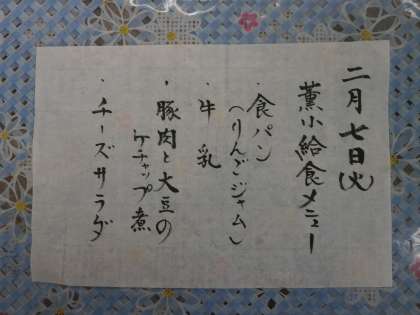 二月七日(火)
薫小給食メニュー
・食パン
(りんごジャム)
・牛乳
・豚肉と大豆の
ケチャップ煮
・チーズサラダ